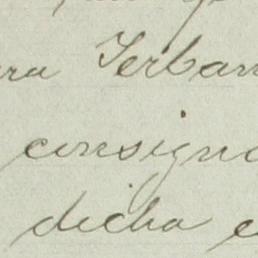 ra Terban
consigna
dicha e